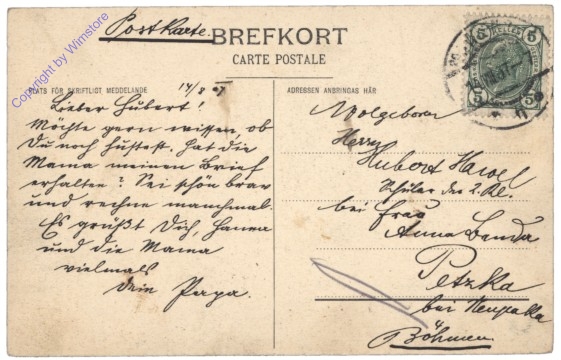 Postkarte.
BREFKORT
CARTE POSTALE
PLATS FÖR SKRIFTLIGT MEDDELANDE
14/8 07
Lieber Hubert!
Möchte gern wissen, ob
Du noch hustest. Hat die
Mama meinen Brief
erhalten? Sei schön brav
und rechne manchmal.
Es grüßt Dich, Hanna
und die Mama
vielmals
Dein Papa.
ADRESSEN ANBRINGAS HÄR
Wolgeboren
Herrn
Hubert
Schüler der 2. Kl.
bei Frau
Anna Benda
Petzka
bei Neupaka
Böhmen
5 5
5 5
Copyright by Wimstore